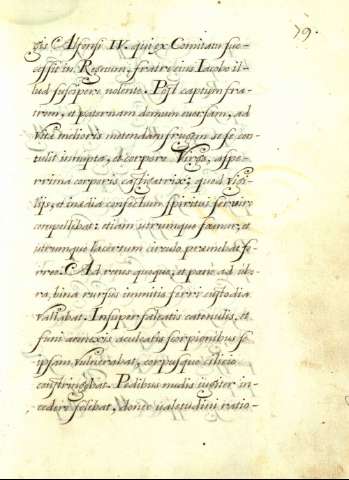 79.
gis Alfonsi IV. qui ex Comitatu suc-
cessit in Regnum, fratre eius Iacobo il-
lud suscipere nolente. Post captum fra-
trem, et paternam domum euersam, ad
vitæ melioris metendam frugem se se con-
tulit innupta, et corpore Virgo, aspe-
rrima corporis castigatrix; quod vigi-
lijs, et inedia confectum spiritui seruire
compellebat: etiam utrumque femur, et
utrumque lacertum circulo premebat fe-
rreo. Ad renes quoque, et pene ad ube-
ra, bina rursus immitis ferri custodia
vallabat. Insuper falcatis catenulis, et
funi annexis aculeatis scorpionibus se
ipsam vulnerabat, corpusque cilicio
constringebat. Pedibus nudis iugiter in-
cedere solebat, donec valetudini ratio-